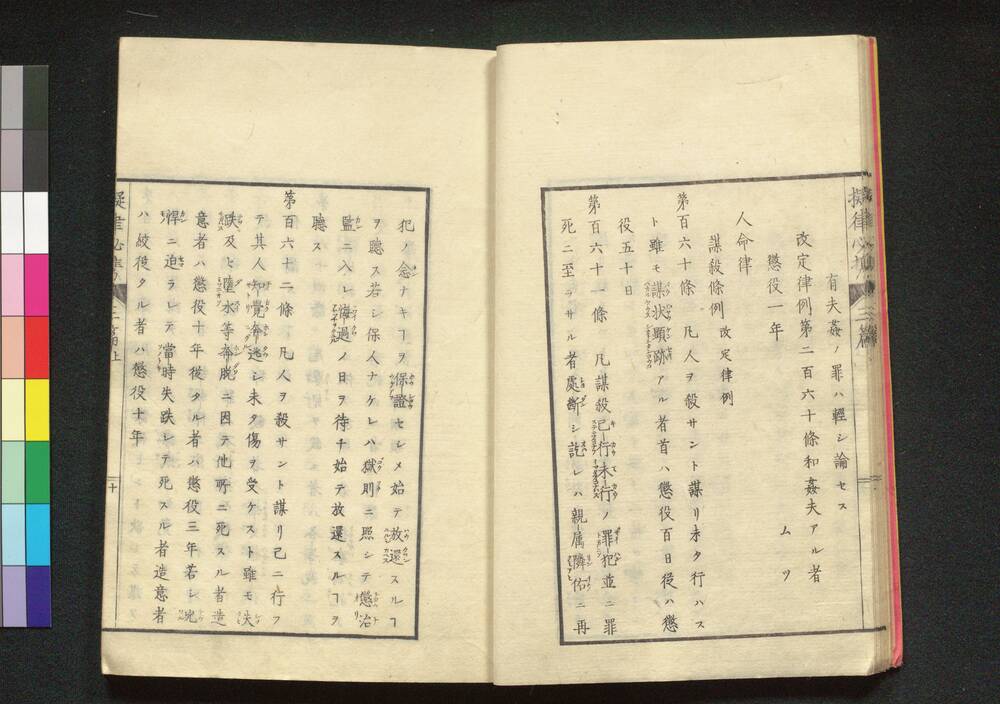 有夫姦ノ罪ハ輕シ論セス
改定律例第二百六十條和姦夫アル者
懲役一年
ムツ
人命律
謀殺條例 改定律例
第百六十條 凡人ヲ殺サント謀リ未タ行ハス
ト雖モ謀状顕跡アル者首ハ懲役百日從ハ懲
役五十日
第百六十一條 凡謀殺已行未行ノ罪犯並ニ罪
死ニ至ラサル者處断シ訖レハ親属隣佑ニ再
犯ノ念ナキヿヲ保證セシメ始テ放還スルヿ
ヲ聽ス若シ保人ナケレハ獄則ニ照シテ懲治
監ニ入レ悔過ノ日ヲ待チ始テ放還スルヿヲ
聽ス
第百六十二條 凡人ヲ殺サント謀リ已ニ行フ
テ其人知覺奔逃シ未タ傷ヲ受ケスト雖モ失
跌及ヒ墮水等奔脱ニ因テ他所ニ死スル者造
意者ハ懲役十年從タル者ハ懲役三年若シ兇
悍ニ迫ラレテ當時失跌シテ死スル者造意者
ハ絞從タル者ハ懲役十年
十